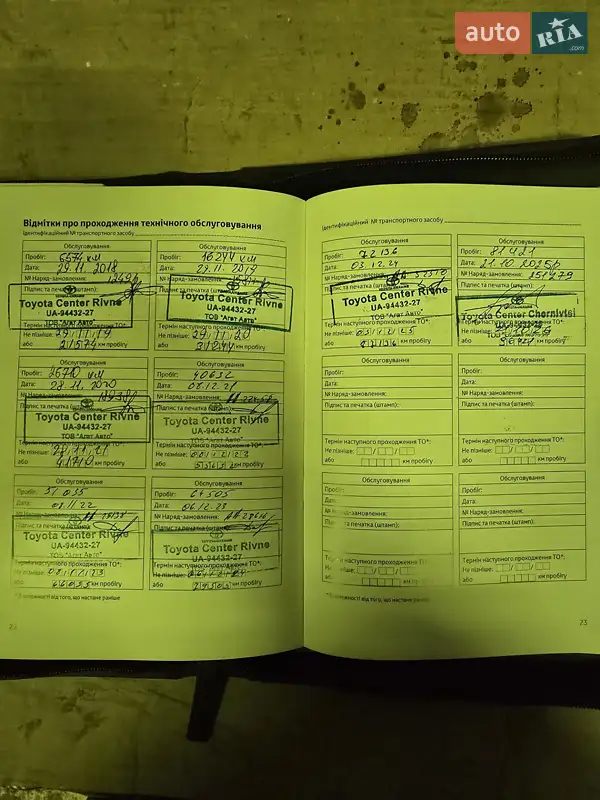 auto RIA.com
Відмітки про проходження технічного обслуговування
Ідентифікаційний № транспортного засобу
Обслуговування
Пробіг: 6574 км
Дата: 29.11.2018
№ Наряд-замовлення:
Підпис та печатка (штамп):
Toyota Center Rivne
UA-94432-27
ТОВ "Агат Авто"
Не пізніше: 29.11.19
або 21574 км пробігу
Обслуговування
Пробіг: 16244 км
Дата: 29.11.2019
№ Наряд-замовлення:
Toyota Center Rivne
UA-94432-27
ТОВ "Агат Авто"
Термін наступного проходження ТО*:
Не пізніше: 29.11.20
або 31244 км пробігу
Обслуговування
Пробіг: 26710 км
Дата: 28.11.2020
№ Наряд-замовлення:
Підпис та печатка (штамп):
Toyota Center Rivne
UA-94432-27
ТОВ "Агат Авто"
або 41710 км пробігу
Обслуговування
Пробіг: 40632
Дата: 08.12.21
№ Наряд-замовлення:
Підпис та печатка (штамп):
Toyota Center Rivne
UA-94432-27
ТОВ "Агат Авто"
Термін наступного проходження ТО*:
Не пізніше:
або км пробігу
Обслуговування
Пробіг: 51035
Дата: 08.11.22
№ Наряд-замовлення:
Підпис та печатка (штамп):
Toyota Center Rivne
UA-94432-27
ТОВ "Агат Авто"
Термін наступного проходження ТО*:
Не пізніше:
або 66035 км пробігу
Обслуговування
Пробіг: 64505
Дата: 06.12.23
№ Наряд-замовлення:
Підпис та печатка (штамп):
Toyota Center Rivne
UA-94432-27
ТОВ "Агат Авто"
Термін наступного проходження ТО*:
Не пізніше:
або км пробігу
*В залежності від того, що настане раніше
22
Ідентифікаційний № транспортного засобу
Обслуговування
Пробіг: 72136
Дата: 03.12.24
№ Наряд-замовлення:
Toyota Center Rivne
UA-94432-27
ТОВ "Агат Авто"
Термін наступного проходження ТО*:
Не пізніше: 03.12.25
або км пробігу
Обслуговування
Пробіг: 81421
Дата: 21.10.2025р
№ Наряд-замовлення:
Підпис та печатка (штамп):
Toyota Center Chernivtsi
Термін наступного проходження ТО*:
Не пізніше:
або км пробігу
Обслуговування
Пробіг:
Дата:
№ Наряд-замовлення:
Підпис та печатка (штамп):
Термін наступного проходження ТО*:
Не пізніше:
або км пробігу
Обслуговування
Пробіг:
Дата:
№ Наряд-замовлення:
Підпис та печатка (штамп):
Термін наступного проходження ТО*:
Не пізніше:
або км пробігу
Обслуговування
Пробіг:
Дата:
№ Наряд-замовлення:
Підпис та печатка (штамп):
Термін наступного проходження ТО*:
Не пізніше:
або км пробігу
Обслуговування
Пробіг:
Дата:
№ Наряд-замовлення:
Підпис та печатка (штамп):
Термін наступного проходження ТО*:
Не пізніше:
або км пробігу
*В залежності від того, що настане раніше
23